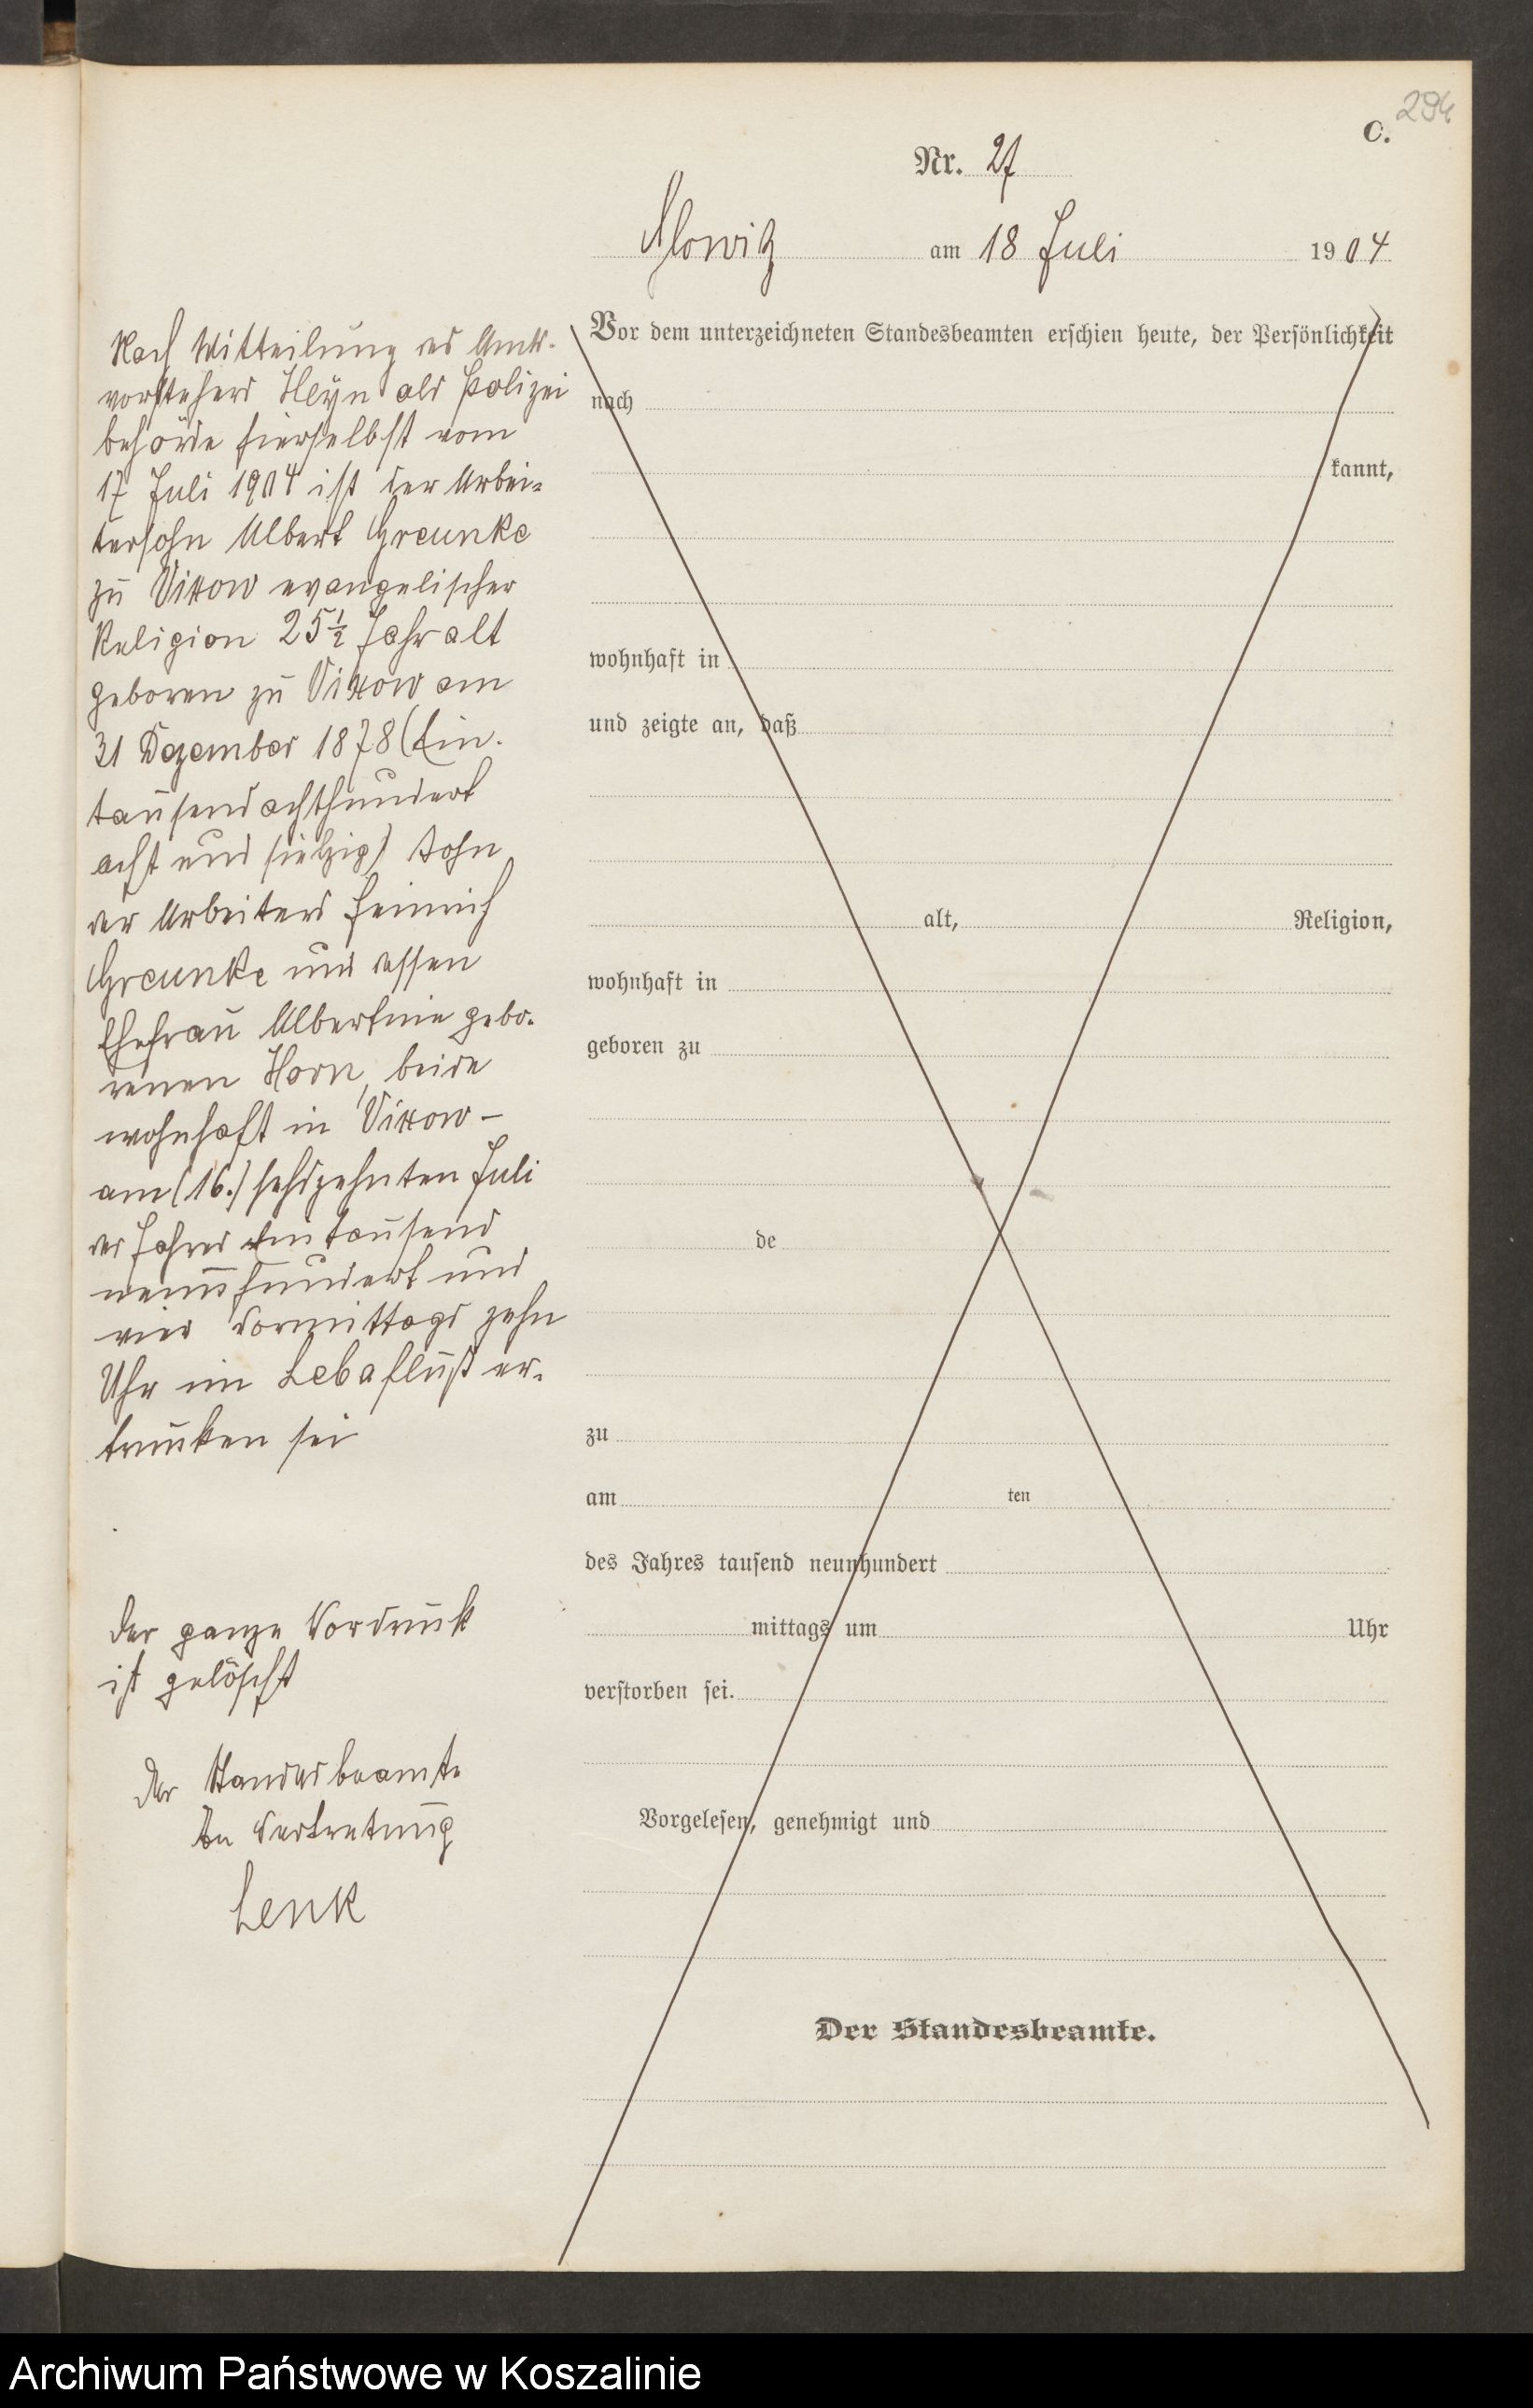 294
C.
Nr. 27
Glowitz am 18 Juli 1904
Nach Mitteilung des Amts-
vorstehers Heyn als Polizei
behörde hierselbst vom
17 Juli 1904 ist der Arbei-
tersohn Albert Greunke
zu Vixow evangelischer
Religion 25 1/2 Jahr alt
geboren zu Vixow am
31 Dezember 1878 (Ein-
tausend achthundert
acht und siebzig) Sohn
des Arbeiters Heinrich
Greunke und dessen
Ehefrau Albertine gebo-
renen Horn, beide
wohnhaft in Vixow –
am (16.) sechszehnten Juli
des Jahres Eintausend
neunhundert und
vier Vormittags zehn
Uhr im Lebafluß er-
trunken sei
Der ganze Vordruck
ist gelöscht
Der Standesbeamte
In Vertretung
Lenk
Vor dem unterzeichneten Standesbeamten erschien heute, der Persönlichkeit
nach
kannt,
wohnhaft in
und zeigte an, daß
alt, Religion,
wohnhaft in
geboren zu
de
zu
am ten
des Jahres tausend neunhundert
mittags um Uhr
verstorben sei.
Vorgelesen, genehmigt und
Der Standesbeamte.
Archiwum Państwowe w Koszalinie